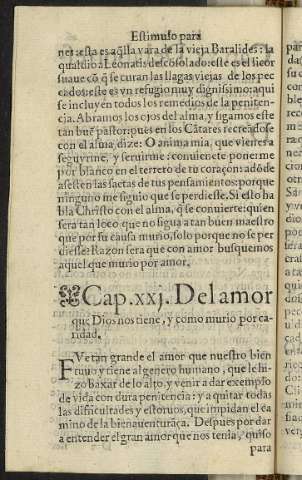 Estimulo para
nes: esta es aq̃lla vara de la vieja Baralides: la
qual dio a Leonatis descõsolado: este es el licor
suaue cõ q̃ se curan las llagas viejas de los pec
cados: este es vn refugio muy dignissimo: aqui
se incluyẽ todos los remedios de la peniten-
cia. Abramos los ojos del alma, y sigamos este
tan buẽ pastor: pues en los Cãtares recreãdose
con el alma, dize: O anima mia, que vienes a
seguyrme, y seruirme: conuienete ponerme
por blanco en el terrero de tu coraçon: adõde
asesten las saetas de tus pensamientos: porque
ninguno me siguio que se perdiesse. Si esto ha
bla Christo con el alma, q̃ se conuierte: quien
sera tan loco que no sigua a tan buen maestro
que por su causa murio, solo porque no se per
diesse: Razon sera que con amor busquemos
aquel que murio por amor.
Cap. xxj. Del amor
que Dios nos tiene, y como murio por ca-
ridad.
FVe tan grande el amor que nuestro bien
tuuo y tiene al genero humano, que le hi-
zo baxar de lo alto, y venir a dar exemplo
de vida con dura penitencia: y a quitar todas
las dificultades y estoruos, que impidan el ca
mino de la bienauenturãça. Despues por dar
a entender el gran amor que nos tenia, quiso
para